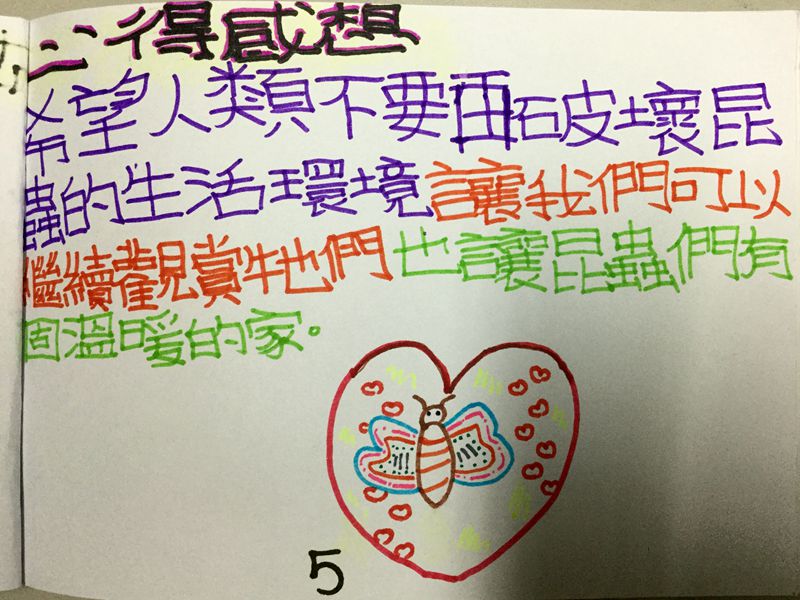 心得感想
希望人類不要再破壞昆
蟲的生活環境讓我們可以
繼續觀賞牠們也讓昆蟲們有
個溫暖的家。
5